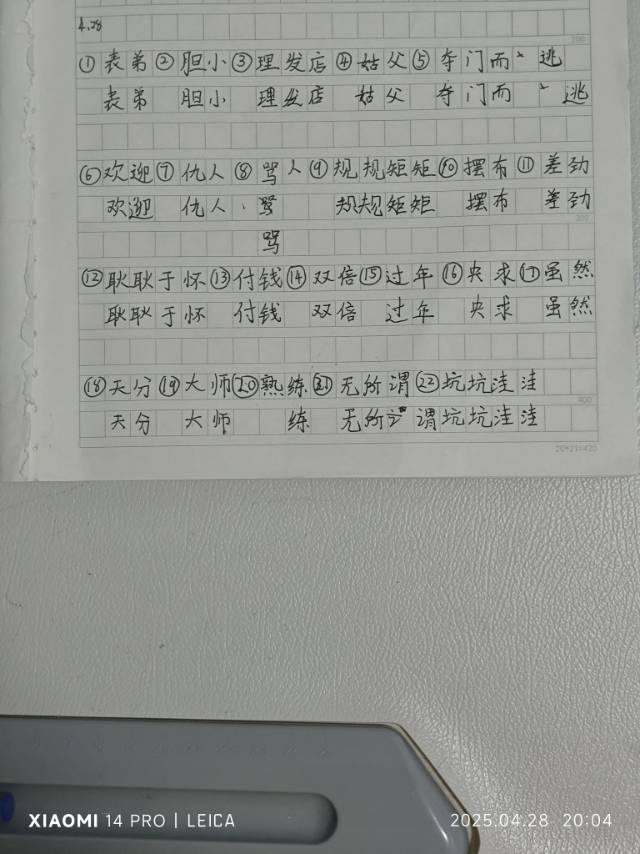 4.28
①表弟②胆小③理发店④姑父⑤夺门而逃
表弟 胆小 理发店 姑父 夺门而逃
⑥欢迎⑦仇人⑧骂人⑨规规矩矩⑩摆布⑪差劲
欢迎 仇人 骂 规规矩矩 摆布 差劲
骂
⑫耿耿于怀⑬付钱⑭双倍⑮过年⑯央求⑰虽然
耿耿于怀 付钱 双倍 过年 央求 虽然
⑱天分⑲大师⑳熟练㉑无所谓㉒坑坑洼洼
天分 大师 练 无所谓坑坑洼洼
400
20×21=420
XIAOMI 14 PRO | LEICA
2025.04.28 20:04